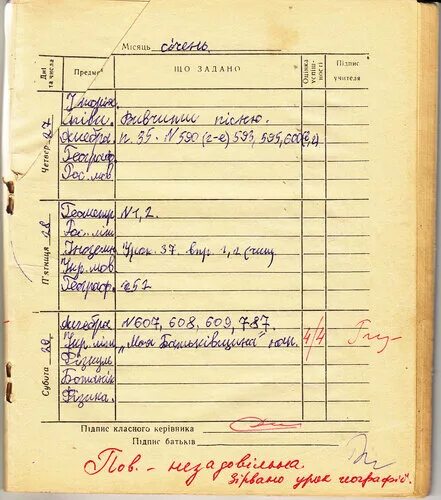 Місяць січень
Дні та числа Предмет ЩО ЗАДАНО Оцінка успіш-ності Підпис учителя
Четвер 27
Історія
Співи. Вивчити пісню.
Алгебра п. 35. N 590 (г-е) 593, 595, 600
Географ
Рос. мов
П'ятниця 28
Геометр N 1, 2.
Рос. літ
Іноземн Урок. 37. впр. 1, 2
Укр. мов
Географ. §52
Субота 29
Алгебра N 607, 608, 609, 787.
Укр. літ „Моя Батьківщина" 4/4
Фізкул
Ботанік
Фізика.
Підпис класного керівника
Підпис батьків
Пов. - незадовільна.
Зірвано урок географії.